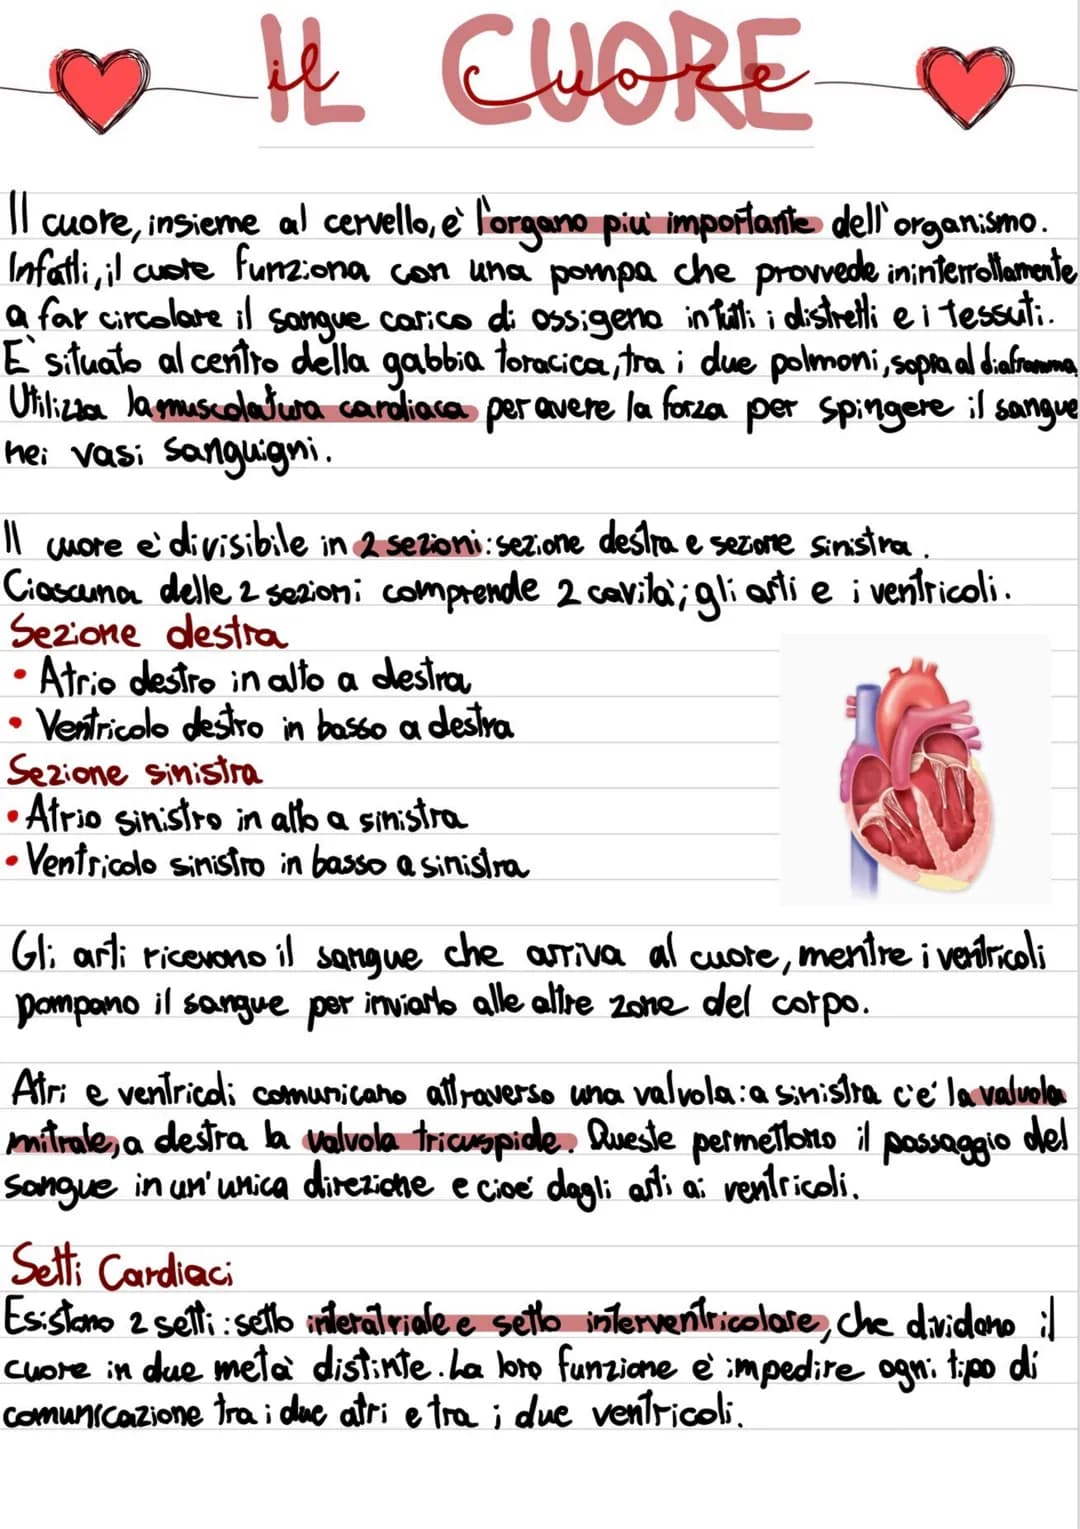 IL CUORE
il cuore
Il cuore, insieme al cervello, è l'organo più importante dell'organismo.
Infatti, il cuore funziona con una pompa che provvede ininterrottamente
a far circolare il sangue carico di ossigeno in tutti i distretti e i tessuti.
E' situato al centro della gabbia toracica, tra i due polmoni, sopra al diaframma.
Utilizza la muscolatura cardiaca per avere la forza per spingere il sangue
nei vasi sanguigni.
Il cuore è divisibile in 2 sezioni: sezione destra e sezione sinistra.
Ciascuna delle 2 sezioni comprende 2 cavità; gli arti e i ventricoli.
Sezione destra
• Atrio destro in alto a destra
• Ventricolo destro in basso a destra
Sezione sinistra
• Atrio sinistro in alto a sinistra
• Ventricolo sinistro in basso a sinistra
Gli arti ricevono il sangue che arriva al cuore, mentre i ventricoli
pompano il sangue per inviarlo alle altre zone del corpo.
Atri e ventricoli comunicano attraverso una valvola: a sinistra c'é la valvola
mitrale, a destra la valvola tricuspide. Queste permettono il passaggio del
sangue in un'unica direzione e cioé dagli arti ai ventricoli.
Setti Cardiaci
Esistono 2 setti: setto interatriale e setto interventricolare, che dividono il
cuore in due metà distinte. La loro funzione è impedire ogni tipo di
comunicazione tra i due atri e tra i due ventricoli.